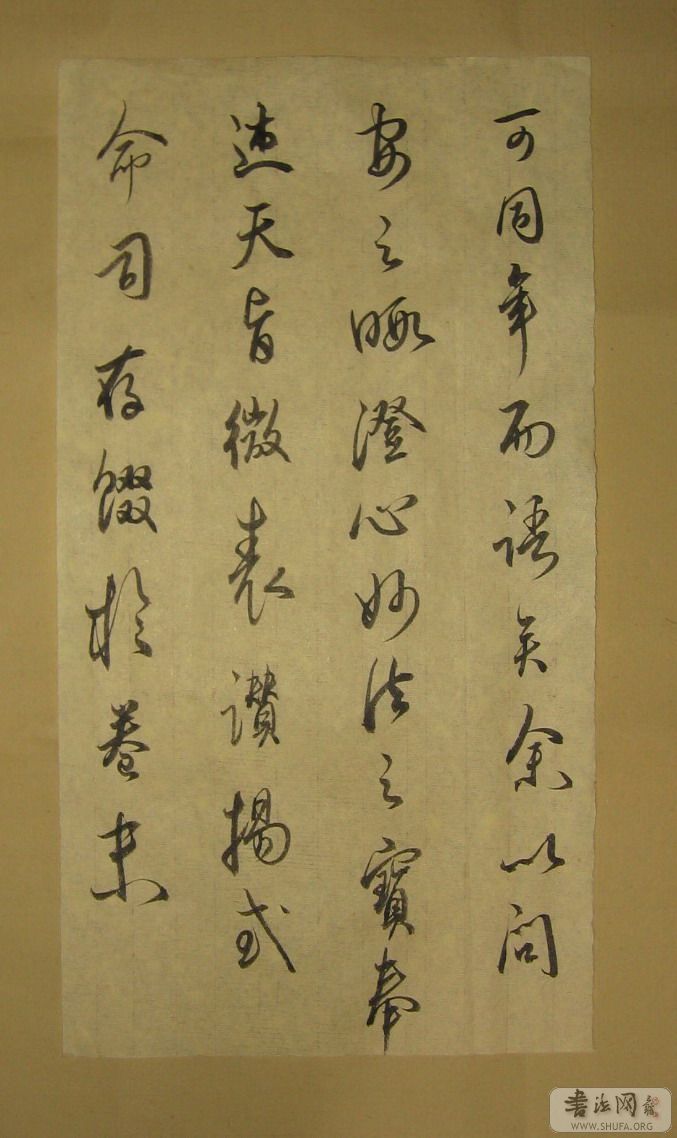 可同年而語矣余以問
安之暇澄心妙法之寶奉
述天旨微表讚揚式
命司存綴於卷末
書法网
WWW.SHUFA.ORG